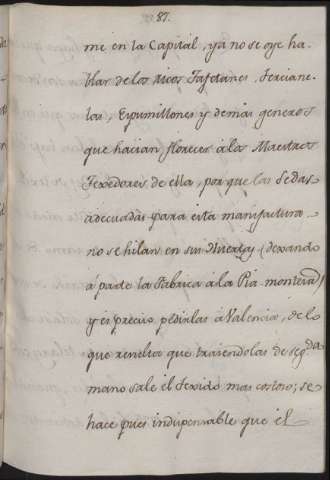 87.
me en la Capital, ya no se oye ha-
blar de los ricos Tafetanes, Terciane-
las, Espumillones y demas generos
que hacian florecer à los Maestros
Texedores de ella, por que las Sedas
adecuadas para esta manufactura
no se hilan en sus Huertas (dexando
á parte la Fabrica à la Pia-montesa)
y es preciso pedirlas à Valencia, de lo
que resulta que trayendolas de seg.da
mano sale el texido mas costoso; se
hace pues indispensable que el